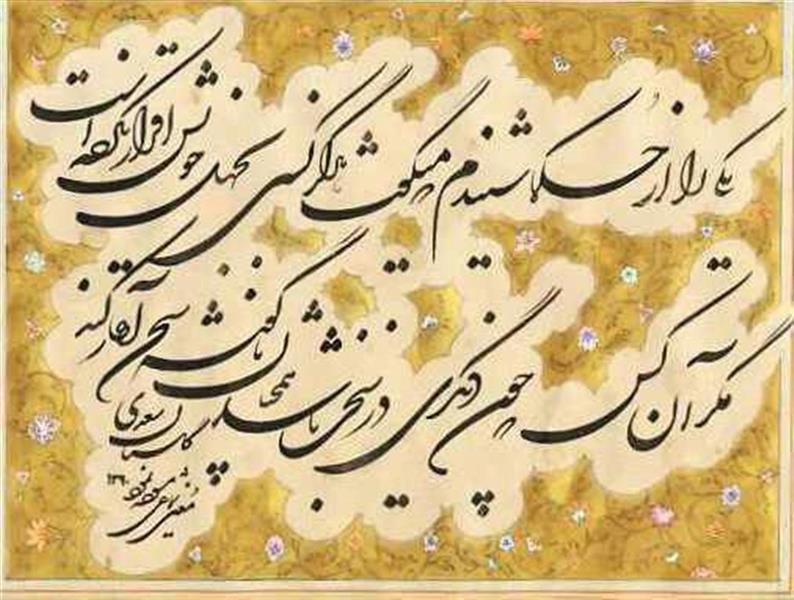 یکی را از حکما شنیدم میگفت هرگز کسی بجهل خویش اقرار نکرده است
مگر آن کس چون دیگری در سخن باشد همچنان ناگفته سخن آغاز کند
گلستان سعدی